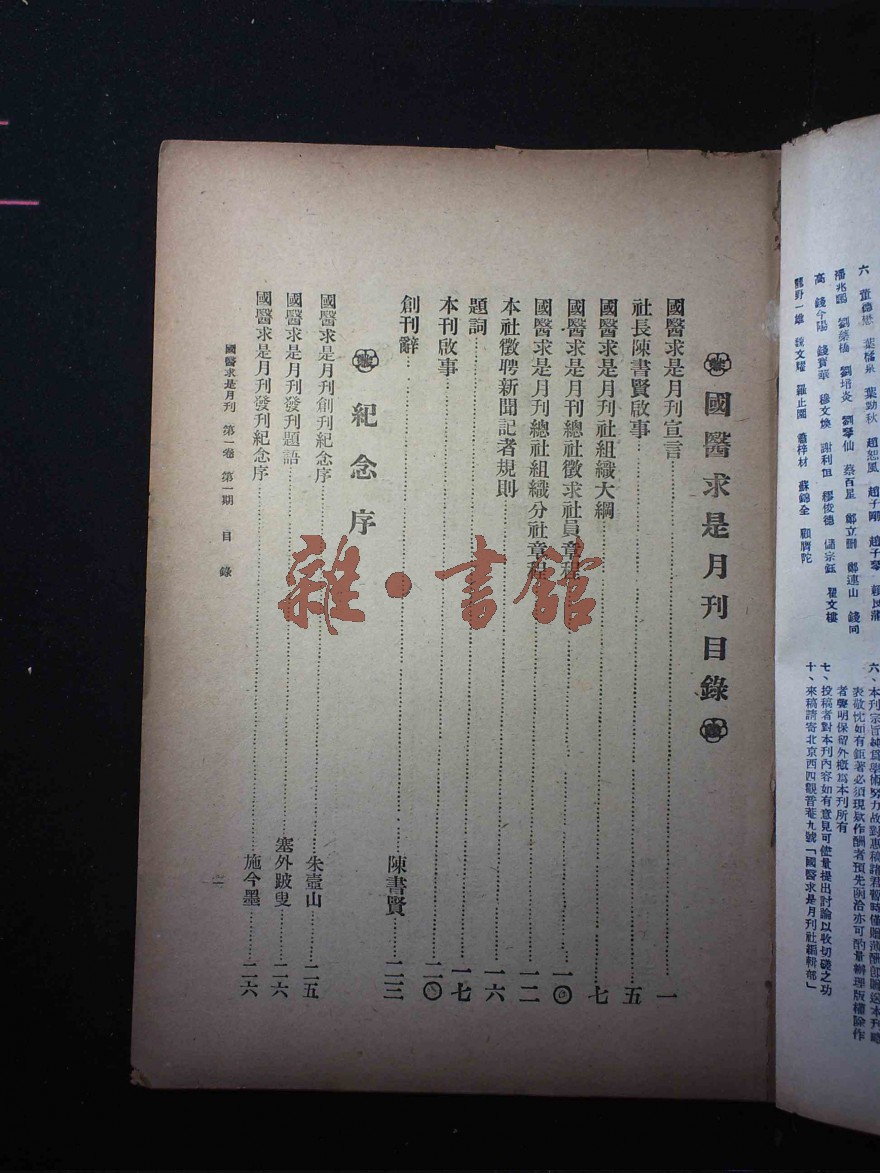 國醫求是月刊目錄
國醫求是月刊宣言……一
社長陳書賢啟事……五
國醫求是月刊社組織大綱……七
國醫求是月刊總社徵求社員章程……一〇
國醫求是月刊總社組織分社章程……一二
本社徵聘新聞記者規則……一六
題詞……一七
本刊啟事……二〇
創刊辭……陳書賢……二三
紀念序
國醫求是月刊創刊紀念序……朱壼山……二五
國醫求是月刊發刊題語……塞外跛叟……二六
國醫求是月刊發刊紀念序……施今墨……二六
國醫求是月刊 第一卷 第一期 目錄
雜·書館
六 董德懋 葉橘泉 葉勁秋 趙恕風 趙子剛 趙子琴
潘兆鵬 劉蔡橋 劉培炎 劉琴仙 蔡百星 鄭連山 錢同
高 錢今陽 錢寶華 穆文煥 謝利恒 繆俊德 儲宗鈺 瞿文樓
龍野一雄 魏文耀 羅止園 蕭梓材 蘇錦全 顧膺陀
六、本刊宗旨純爲學術努力故對惠稿諸君暫時僅贈
表敬忱如有鉅著必須現欵作酬者預先函洽亦可酌量辦理版權除作
者聲明保留外概爲本刊所有
七、投稿者對本刊內容如有意見可儘量提出討論以收切磋之功
十、來稿請寄北京西四觀音菴九號「國醫求是月刊社編輯部」